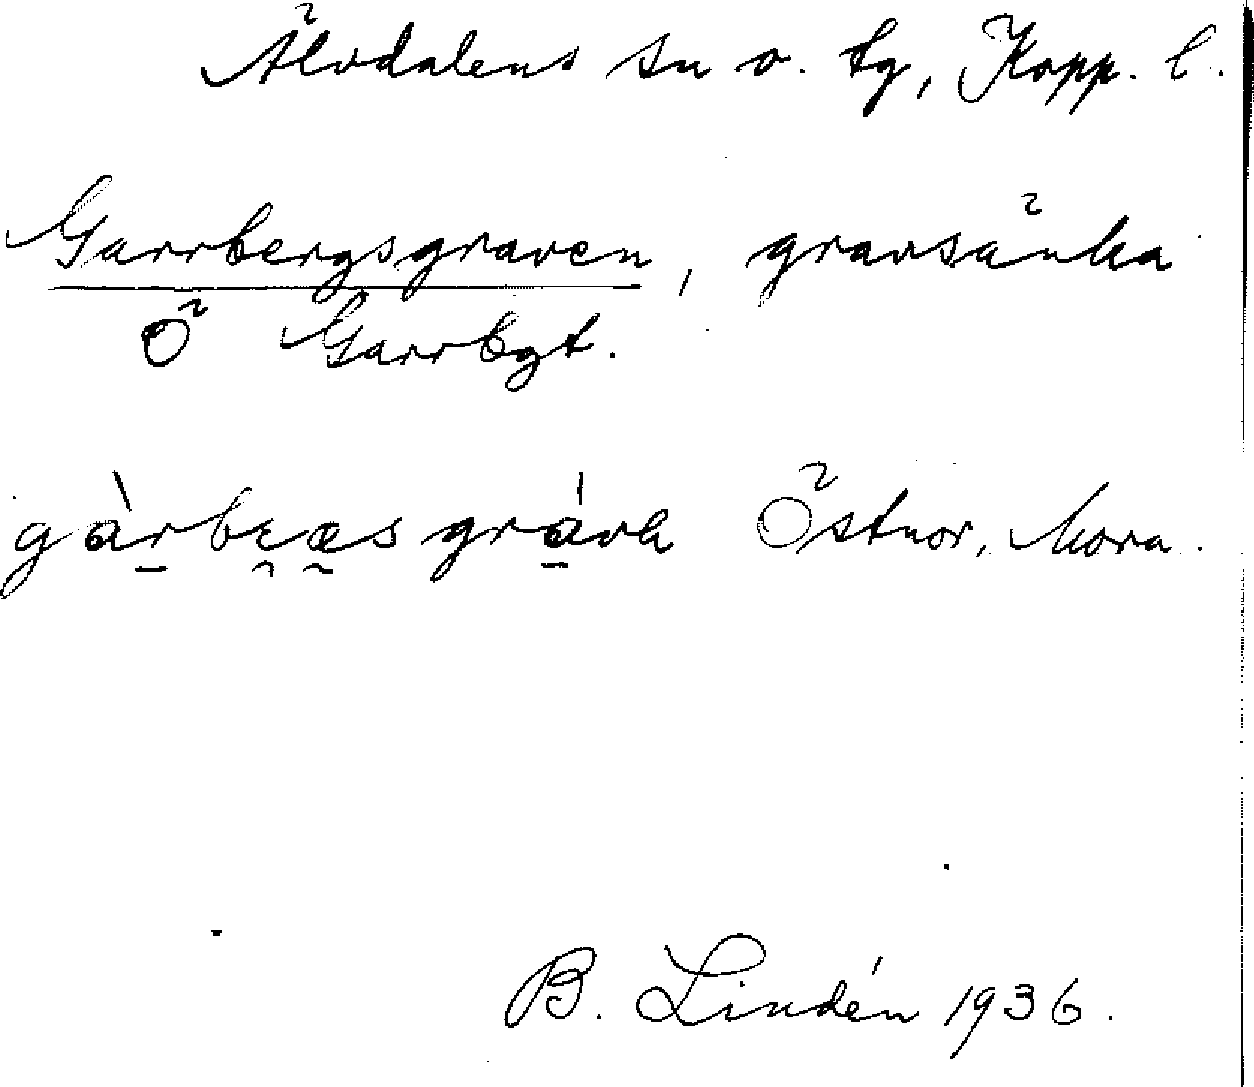 Älvdalens sn o. tg, Kopp. l.
Garrbergsgraven, gravsänka
Ö Garrbgt.
Östnor, Mora.
B. Lindén 1936.